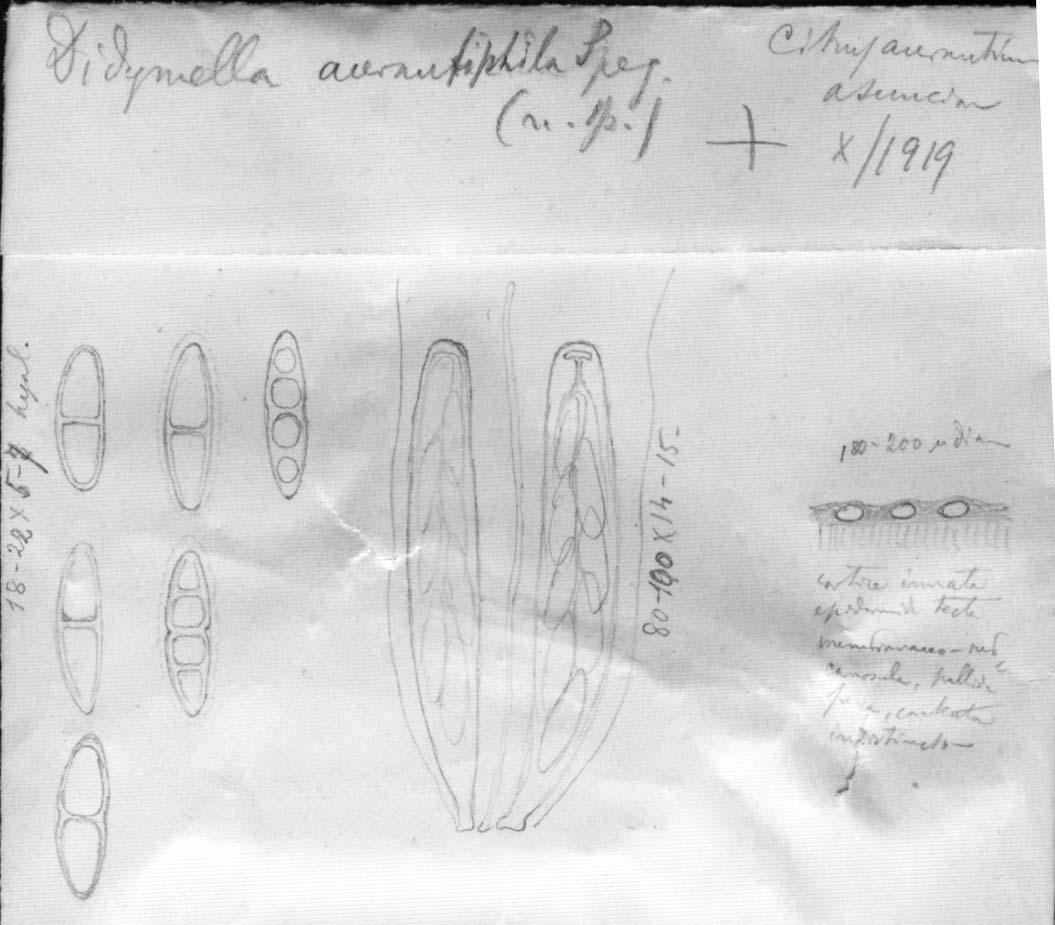 Didymella aurantiphila Speg.
(n. sp.)
Citrus aurantium
asuncion
X/1919
18-22 X 5-7 hyal.
80-100 X 14-15.
180-200 u diam
cortice innata
epidermide tecta
membranaceo-sub
carnosula, pallide
indistincto